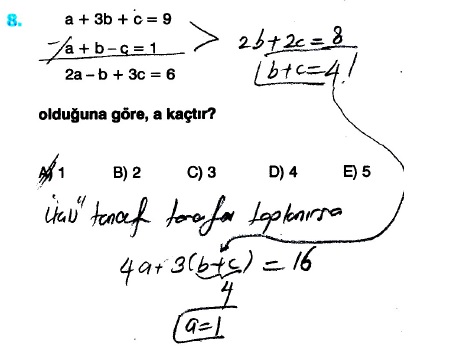 8.
a + 3b + c = 9
-/a + b - c = 1
2a - b + 3c = 6
2b + 2c = 8
b + c = 4!
olduğuna göre, a kaçtır?
A) 1 B) 2 C) 3 D) 4 E) 5
üçü" taraf tarafa toplanırsa
4a + 3(b+c) = 16
4
a = 1